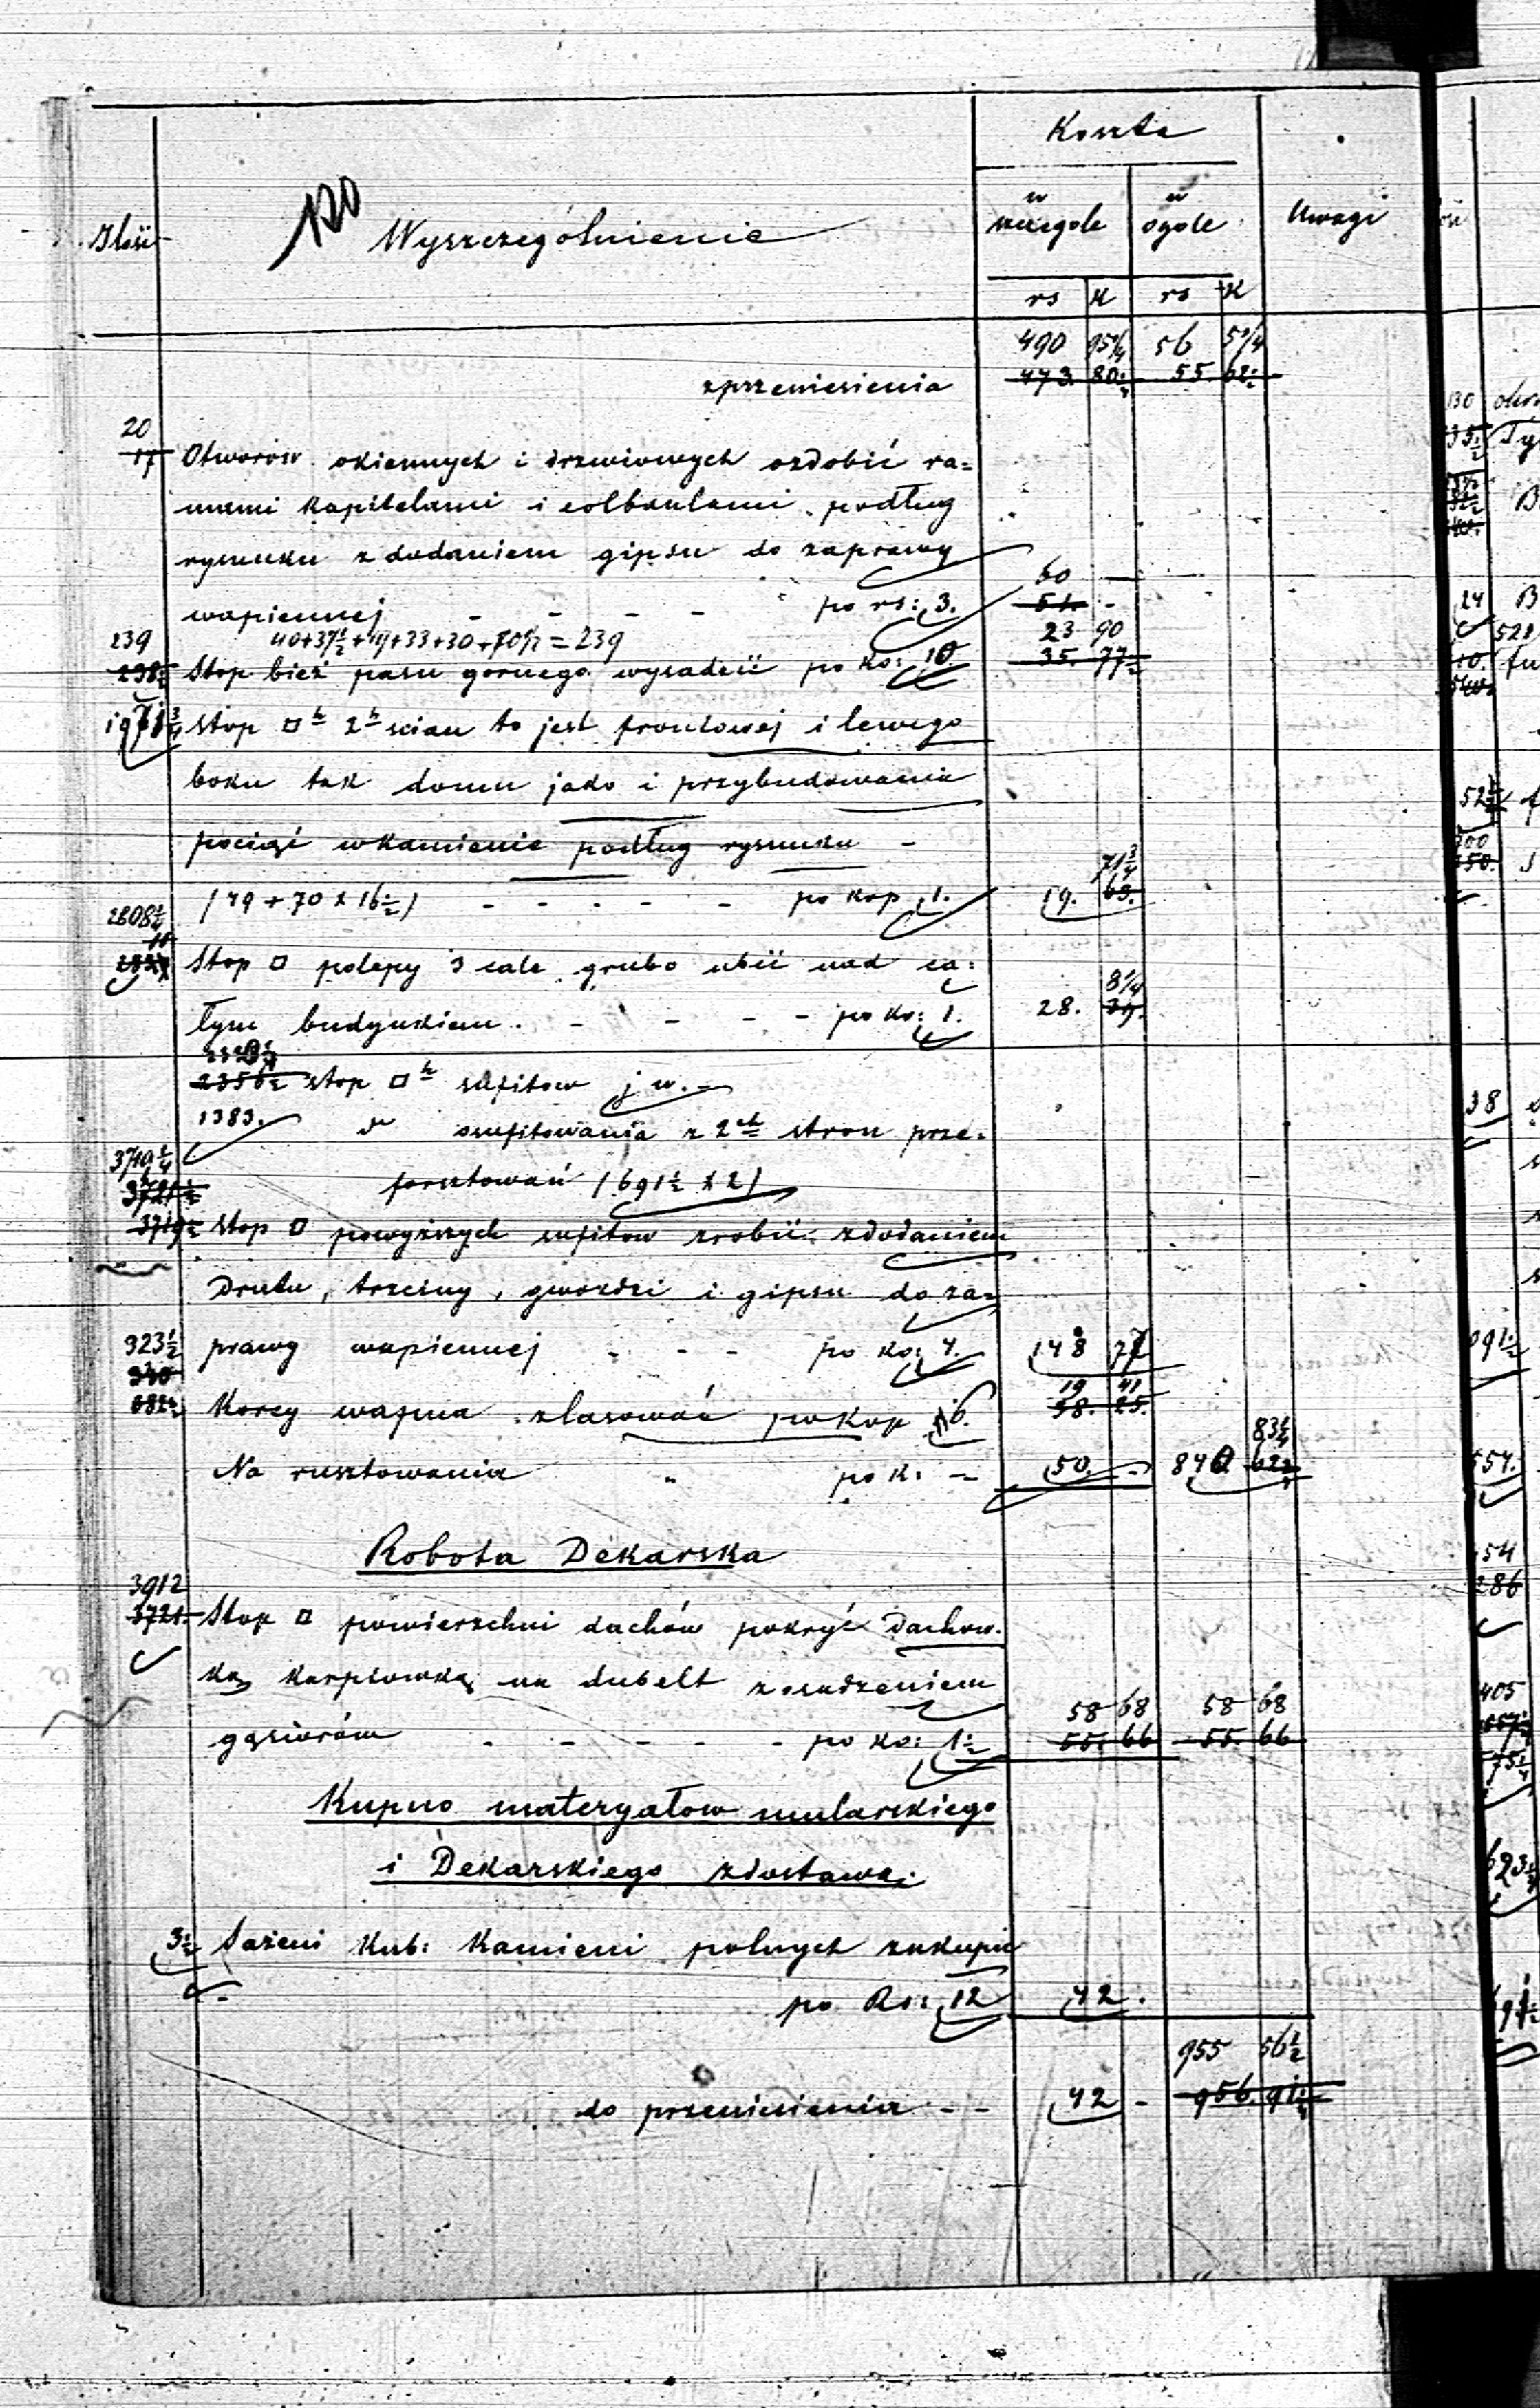 120
Koszta
Ilość Wyszczególnienie w szczególe w ogóle Uwagi
rs k rs k
490 95¼ 56 5¼
zprzeniesienia 473. 80½ 55. 62½
20
17 Otworów okiennych i drzwiowych ozdobić ra=
mami kapitelami i colbankami podług
rysunku z dodaniem gipsu do zaprawy
60 —
wapiennej - - - - po rs: 3. 51. -
239 40+37½+19+33+30+70½=239 23 90
238½ Stop bież pasu górnego wysadzić po ko: 10. 35. 77½
1971¾ stop □ 2 ścian to jest frontowej i lewego
boku tak domu jako i przybudowania
pociąć wkamienie podług rysunku -
71¾
(49 + 70 x 16½) - - - - - po kop. 1. 19. 63.
2808¼
Stop □ polepy 3 cale grubo ubić nad ca=
8¼
łym budynkiem. - - - - po ko: 1. 28. 39.
2356½ stop □ sufitow j w. -
1383. " osufitowania z 2ch stron prze=
3719¼
forsztowań (691½ x 2)
3719½ stop □ powyższych sufitow zrobić zdodaniem
Drutu, trzciny, gwoździ i gipsu do za=
323½ prawy wapiennej - - - po ko: 4. 148 77
19 41
682½ Korcy wapna zlasować po kop 6. 38. 25.
83¼
Na rusztowania " po k: - 50. - 840 62½
Robota Dekarska
3912
3721. Stop □ powierzchni dachów pokryć Dachów=
ką karpiowką na dubelt zosadzeniem
58 68 58 68
gąsiorów - - - - - po ko: 1½ 55. 66 55. 66
Kupno materyałow mularskiego
i Dekarskiego zdostawą:
3½ Sążeni Kub: Kamieni polnych zakupić
po Rs: 12 42.
955 56½
do przeniesienia - - 42 - 956. 91½